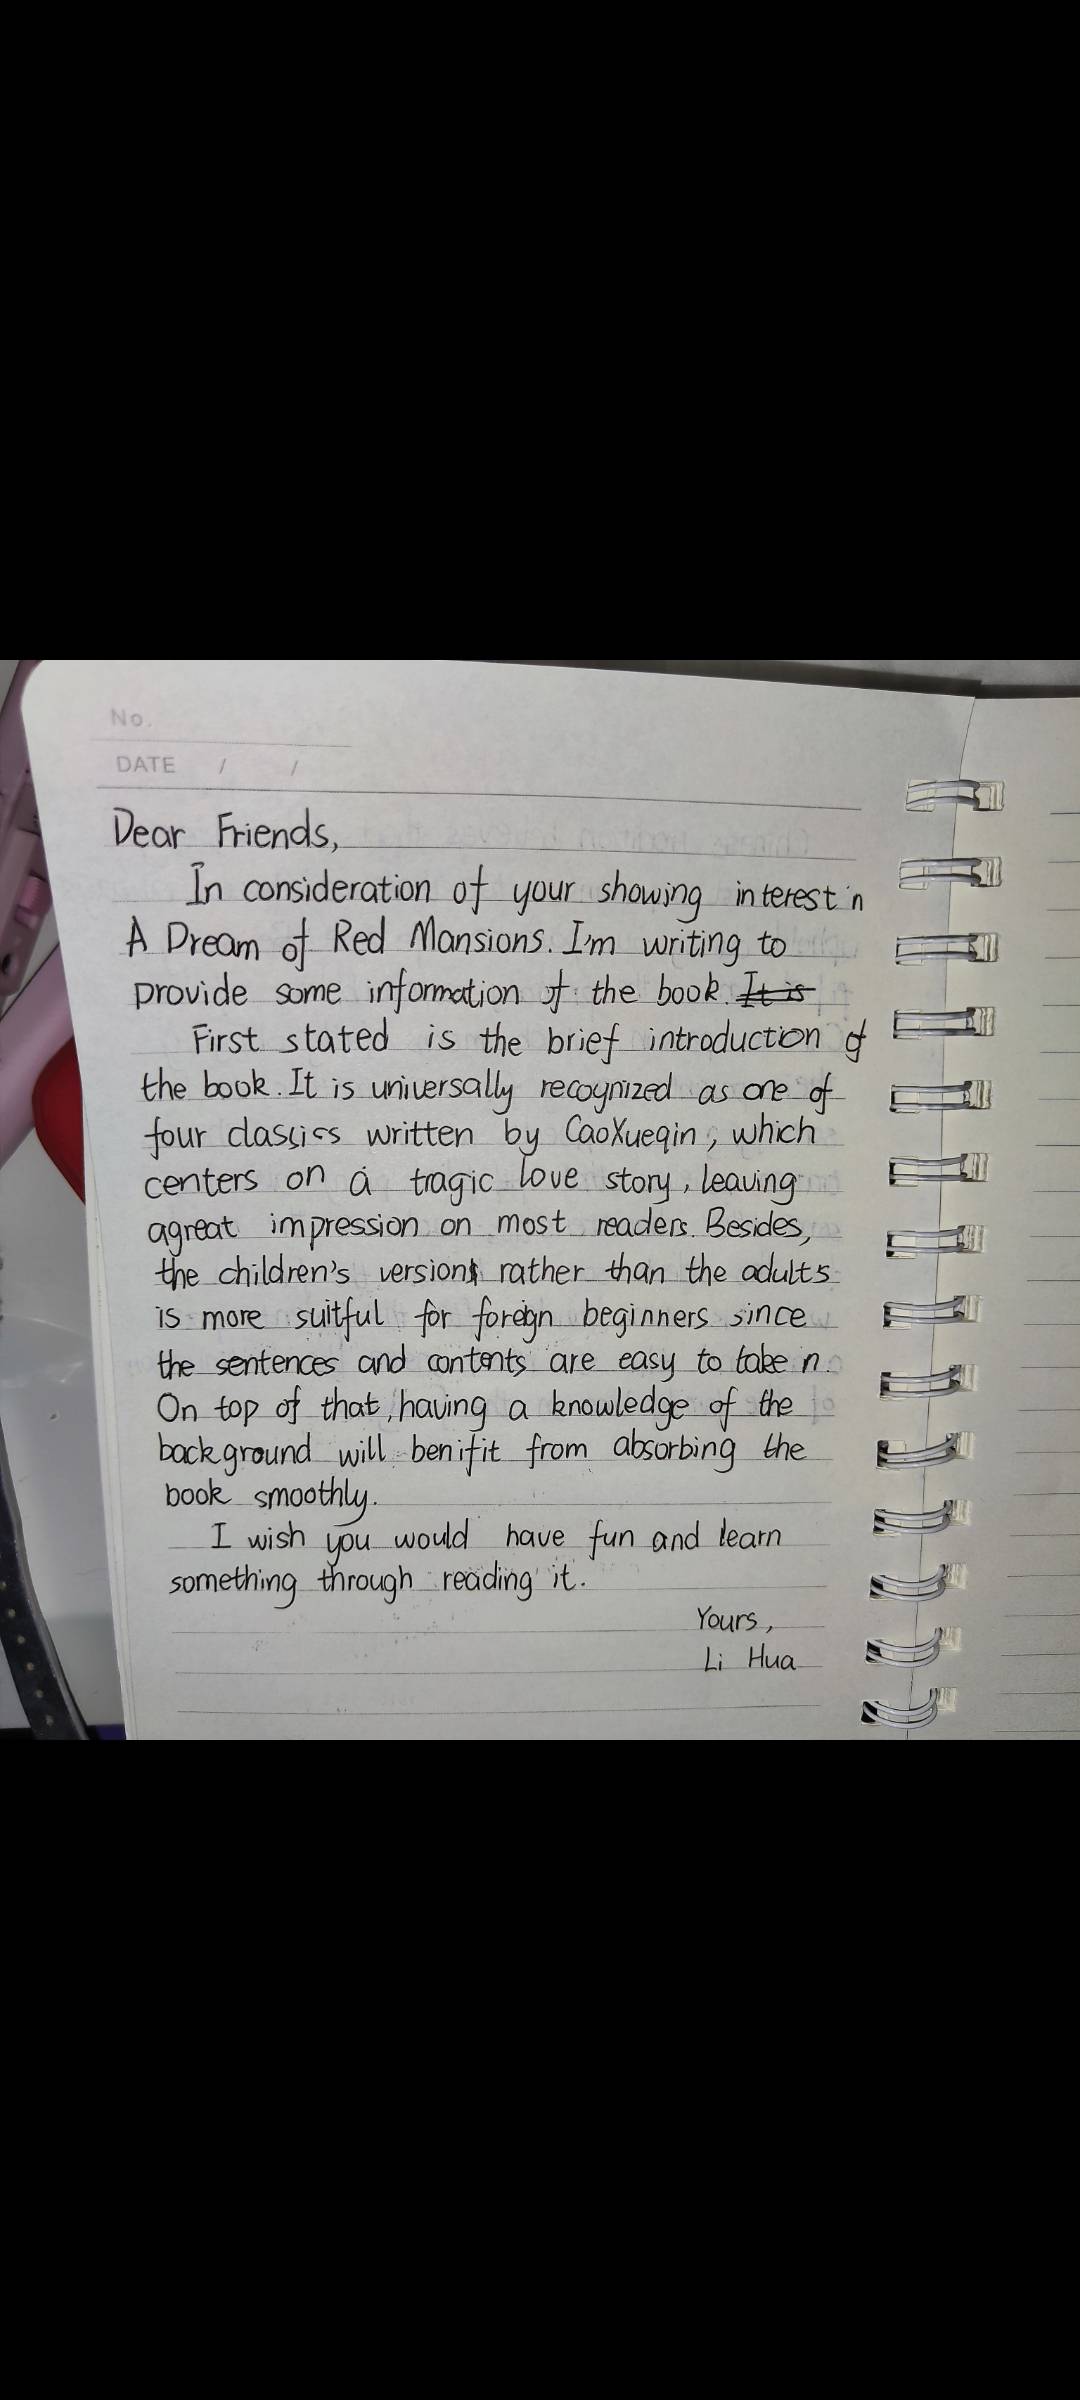 No.
DATE / /
Dear Friends,
In consideration of your showing interest in
A Dream of Red Mansions. I'm writing to
provide some information of the book. It is
First stated is the brief introduction of
the book. It is universally recognized as one of
four classics written by CaoXueqin, which
centers on a tragic love story, leaving
agreat impression on most readers. Besides,
the children's version rather than the adults
is more suitful for foreign beginners since
the sentences and contents are easy to take in.
On top of that, having a knowledge of the
background will benifit from absorbing the
book smoothly.
I wish you would have fun and learn
something through reading it.
Yours,
Li Hua